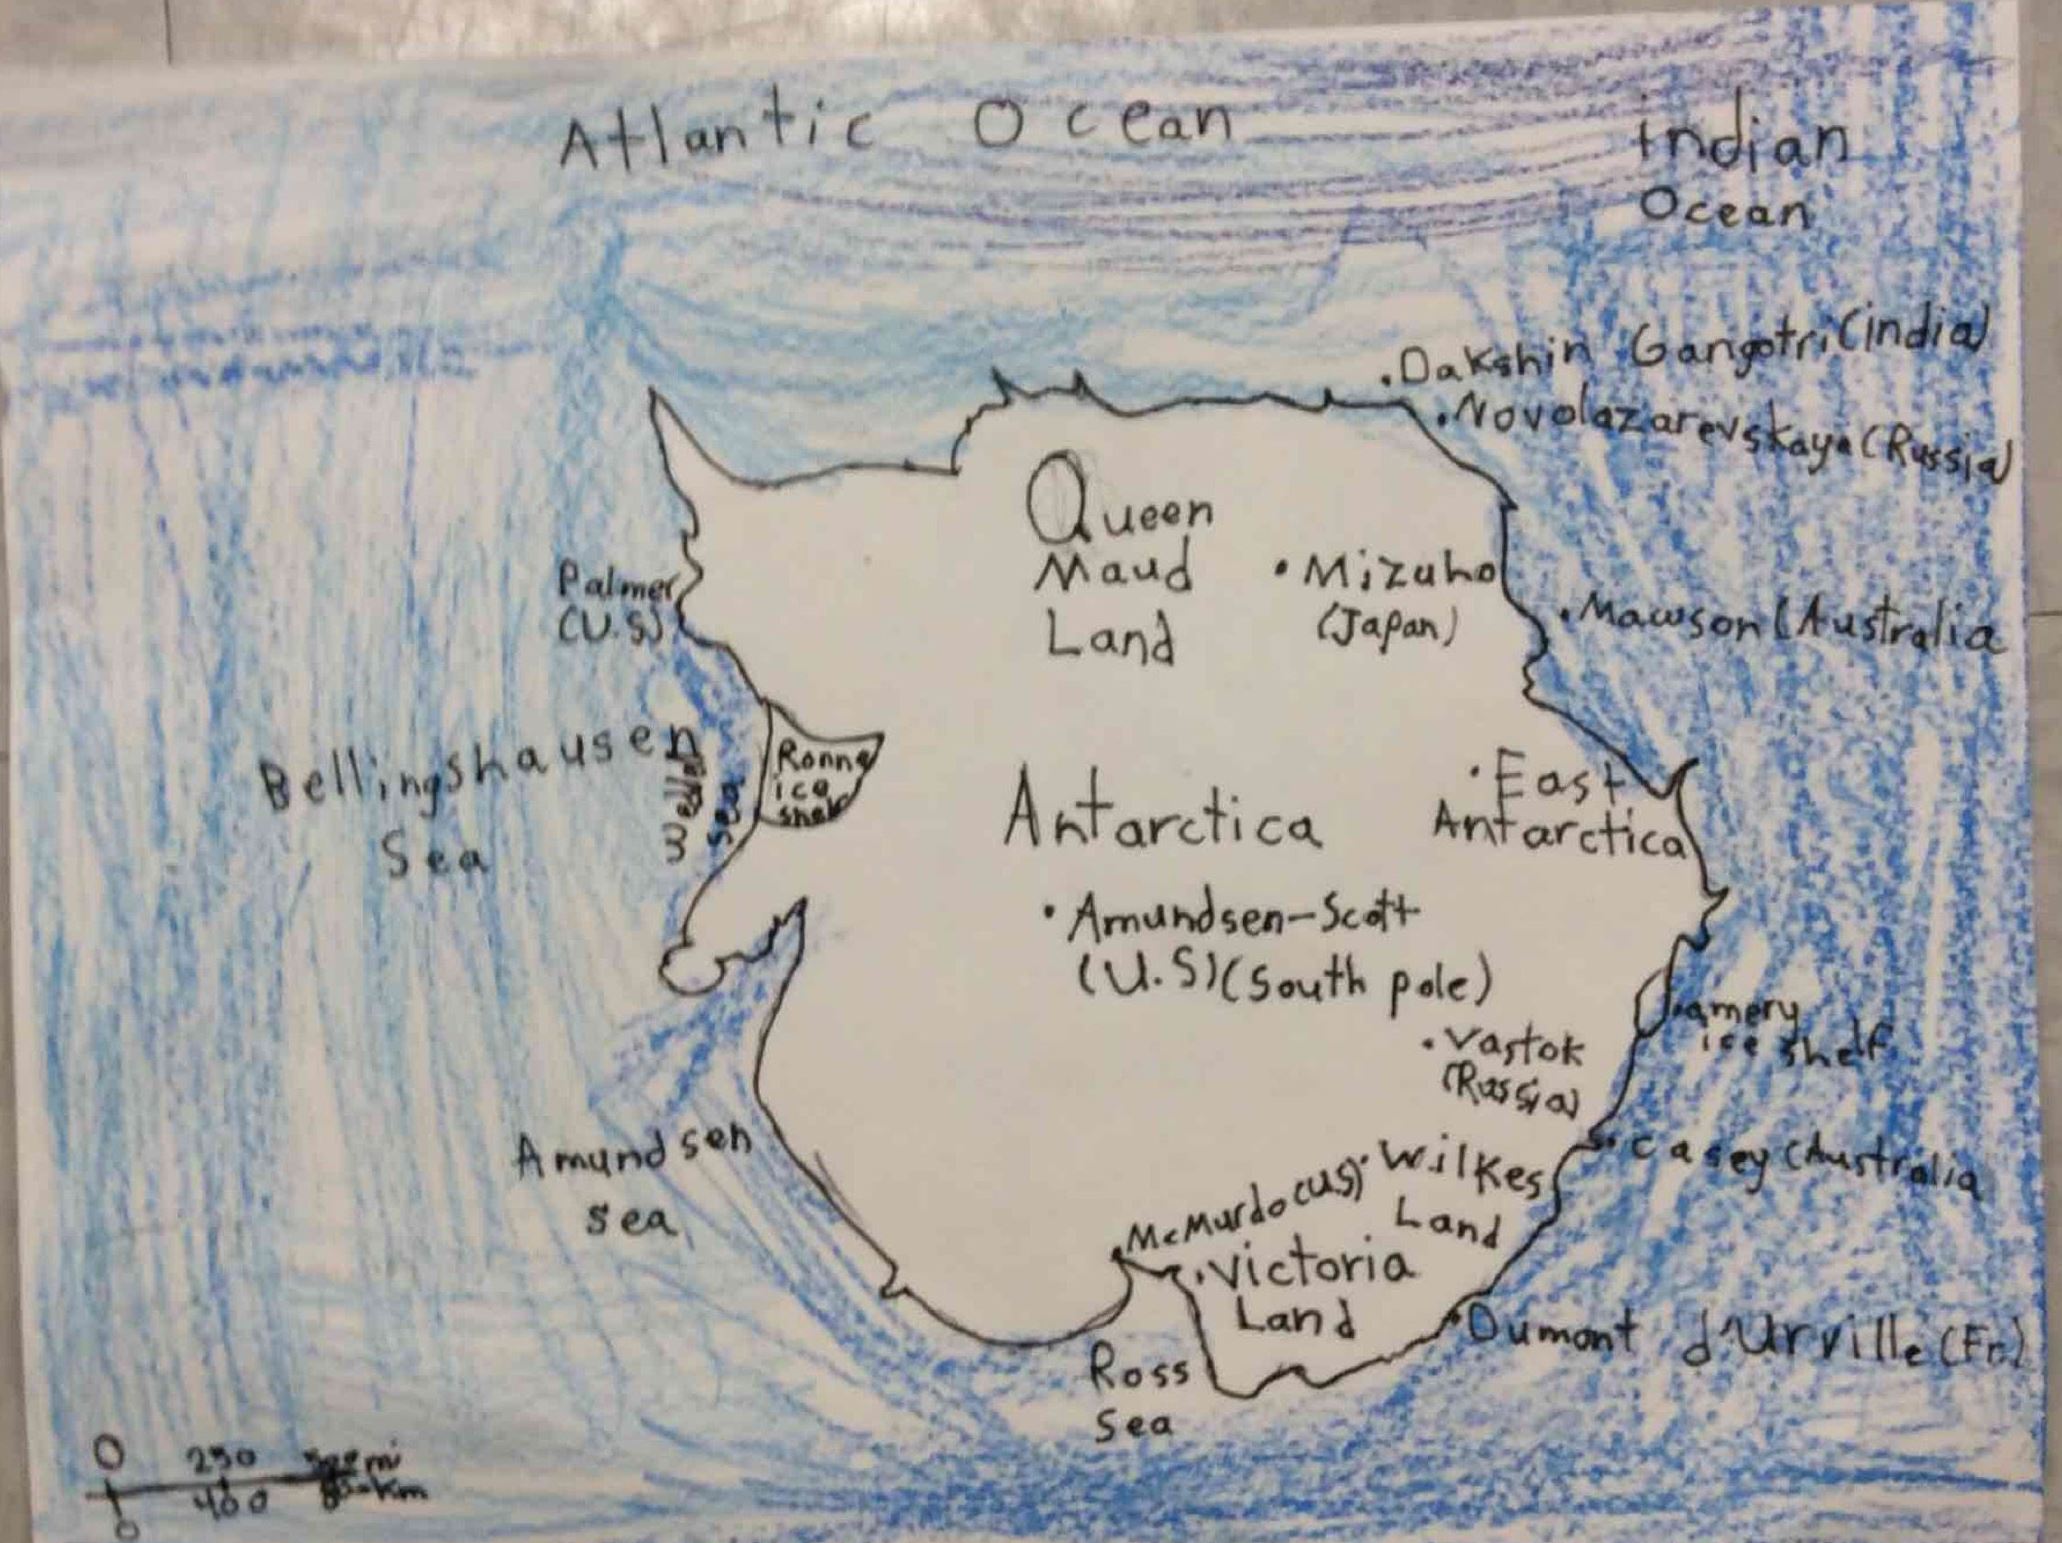 Atlantic Ocean
indian
Ocean
Dakshin Gangotri (india)
Novolazarevskaya (Russia)
Queen
Maud
Land
Mizuho
(Japan)
Palmer
(U.S)
Mawson (Australia
Bellingshausen
Sea
weddell
sea
Ronne
ice
shelf
Antarctica
East
Antarctica
Amundsen-Scott
(U.S) (South pole)
amery
ice shelf
Vastok
(Russia)
Amundsen
sea
casey (Australia
McMurdo (US)
Wilkes
Land
Victoria
Land
Dumont d'Urville (Fr.)
Ross
Sea
0 250 mi
0 400 km